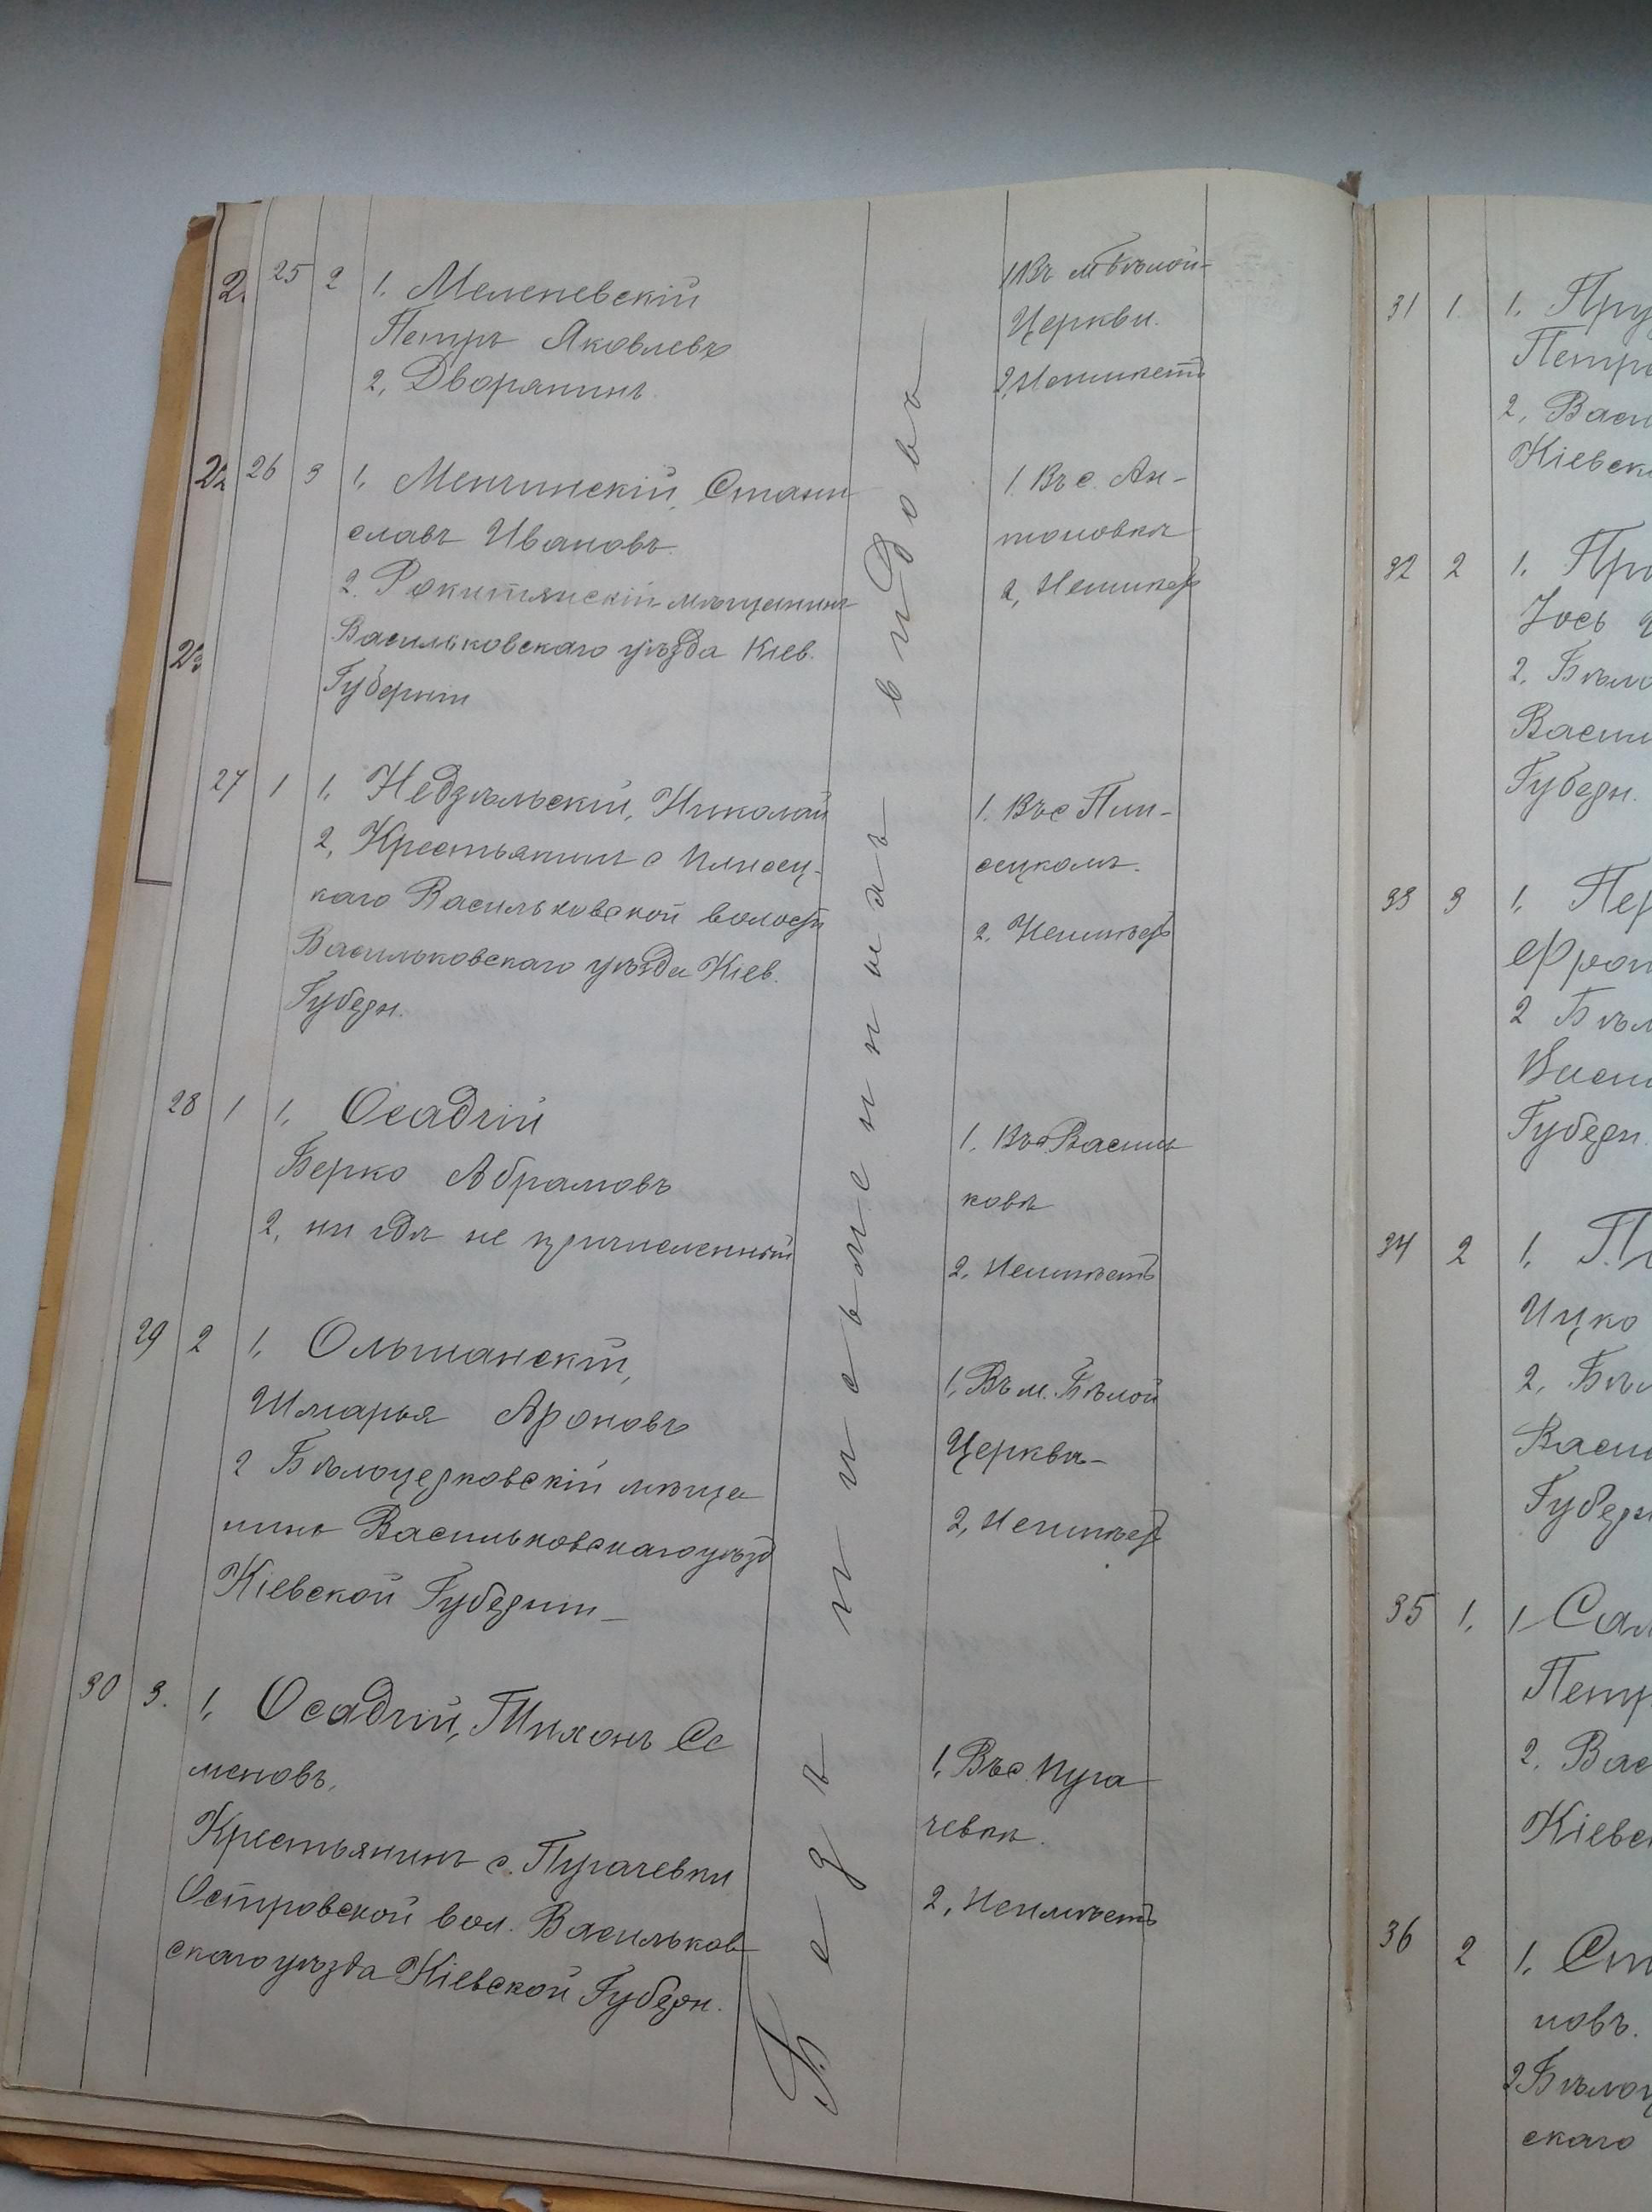 25 2 1. Мелепевскій
Петръ Яковлевъ
2, Дворянинъ.
1, Въ м Бѣлой-
Церкви.
2, Неимѣетъ
26 3 1, Менчинскій, Стани-
славъ Ивановъ.
2. Рокитянскій мѣщанинъ
Васильковскаго уѣзда Кіев.
Губерніи
1. Въ с. Ан-
тоновкѣ
2, Неимѣетъ
27 1 1, Недзѣльскій, Николай
2, Крестьянинъ с Плисец-
каго Васильковской волости
Васильковскаго уѣзда Кіев.
Губерн.
1. Въ с Пли-
сецкомъ.
2. Неимѣетъ
28 1 1, Осадчій
Берко Абрамовъ
2, ни гдѣ не причисленный
1. Въ г Василь
ковѣ
2, Неимѣетъ
29 2 1, Ольшанскій,
Шмарья Ароновъ
2 Бѣлоцерковскій мѣща
нинъ Васильковскаго уѣзд
Кіевской Губерніи
1, Въ м. Бѣлой
Церкви-
2, Неимѣетъ
30 3. 1, Осадчій, Тихонъ Се
меновъ,
Крестьянинъ с. Пугачевки
Островской вол. Васильков-
скаго уѣзда Кіевской Губерн.
1, Въ с. Пуга
чевкѣ.
2, Неимѣетъ
Безъ письменныхъ видовъ
31 1. 1,
Петр
2, Васи
Кіевск
32 2 1.
Іось
2. Бѣло
Васи
Губерн.
33 3 1,
2 Бѣл
Васи
Губерн.
34 2 1,
Ицко
2, Бѣл
Васи
Губерн
35 1, 1,
Петр
2. Вас
Кіевс
36 2 1,
новъ.
2 Бѣлоц
скаго